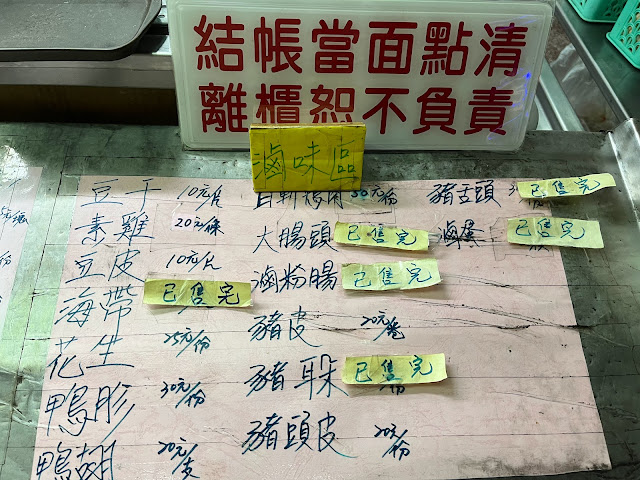 結帳當面點清
離櫃恕不負責
滷味區
豆干 10元/片
素雞 20元/條
豆皮 10元/片
海帶 已售完
花生 25元/份
鴨肫 30元/份
鴨翅 20元/支
50元/份
大腸頭 已售完
滷粉腸 已售完
豬皮 20元/捲
豬耳朵 已售完
豬頭皮 20元/份
豬舌頭 已售完
滷蛋 已售完